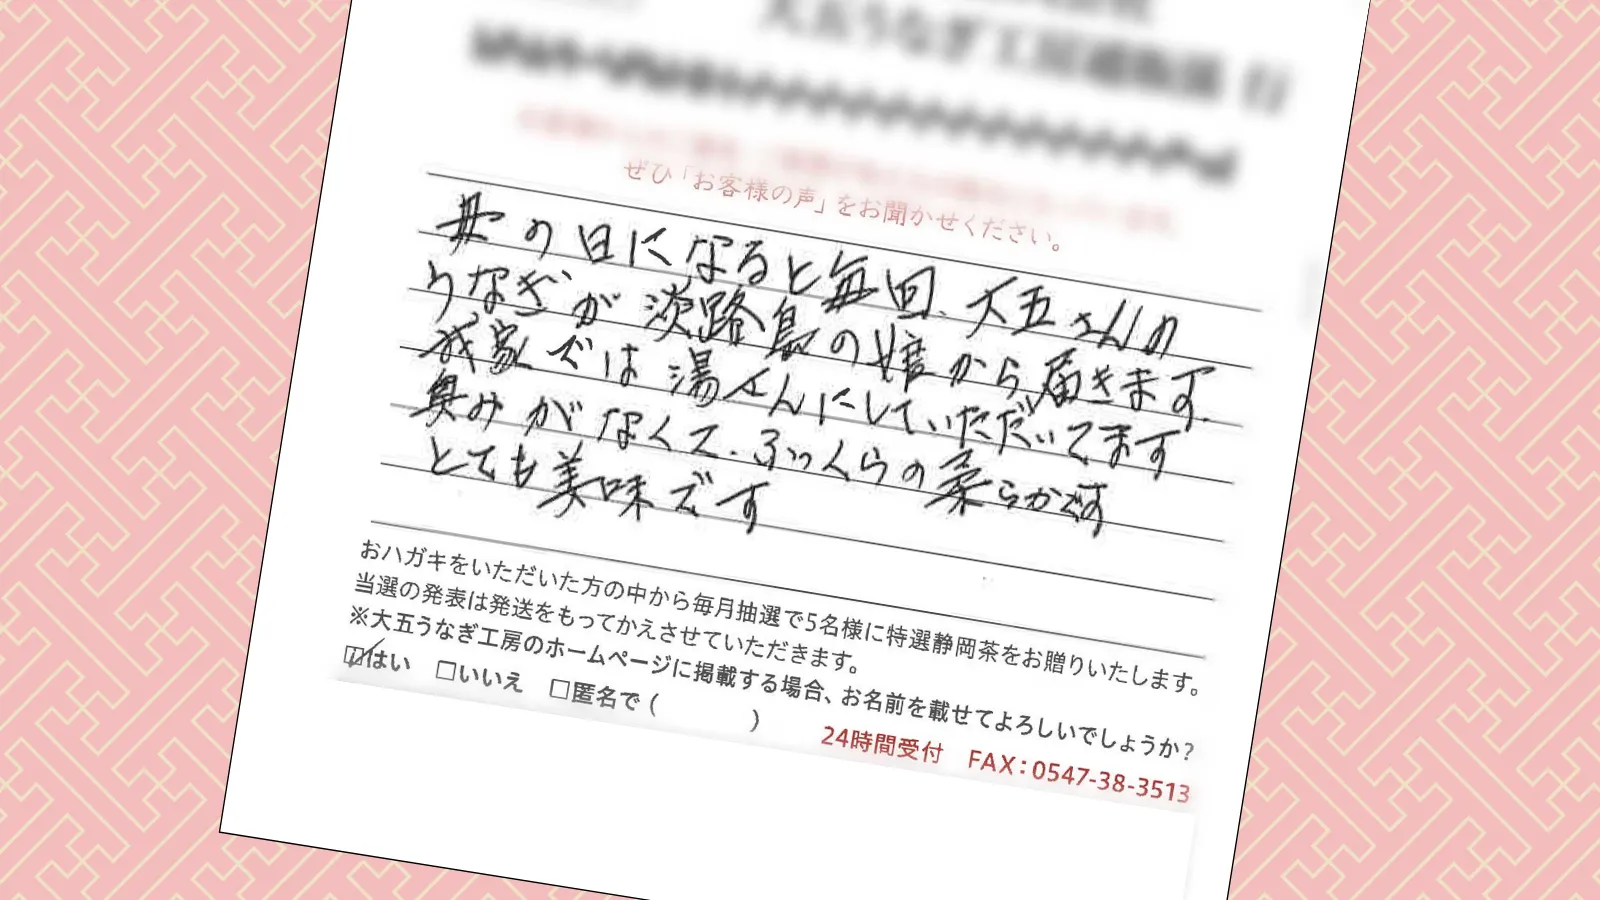 大五うなぎ工房通販係 行
ぜひ「お客様の声」をお聞かせください。
母の日になると毎回、大五さんの
うなぎが淡路島の娘から届きます。
我家では湯せんにしていただいてます
臭みがなくて、ふっくらの柔らかです
とても美味です
おハガキをいただいた方の中から毎月抽選で5名様に特選静岡茶をお贈りいたします。
当選の発表は発送をもってかえさせていただきます。
※大五うなぎ工房のホームページに掲載する場合、お名前を載せてよろしいでしょうか?
☑はい □いいえ □匿名で( )
24時間受付 FAX:0547-38-3513